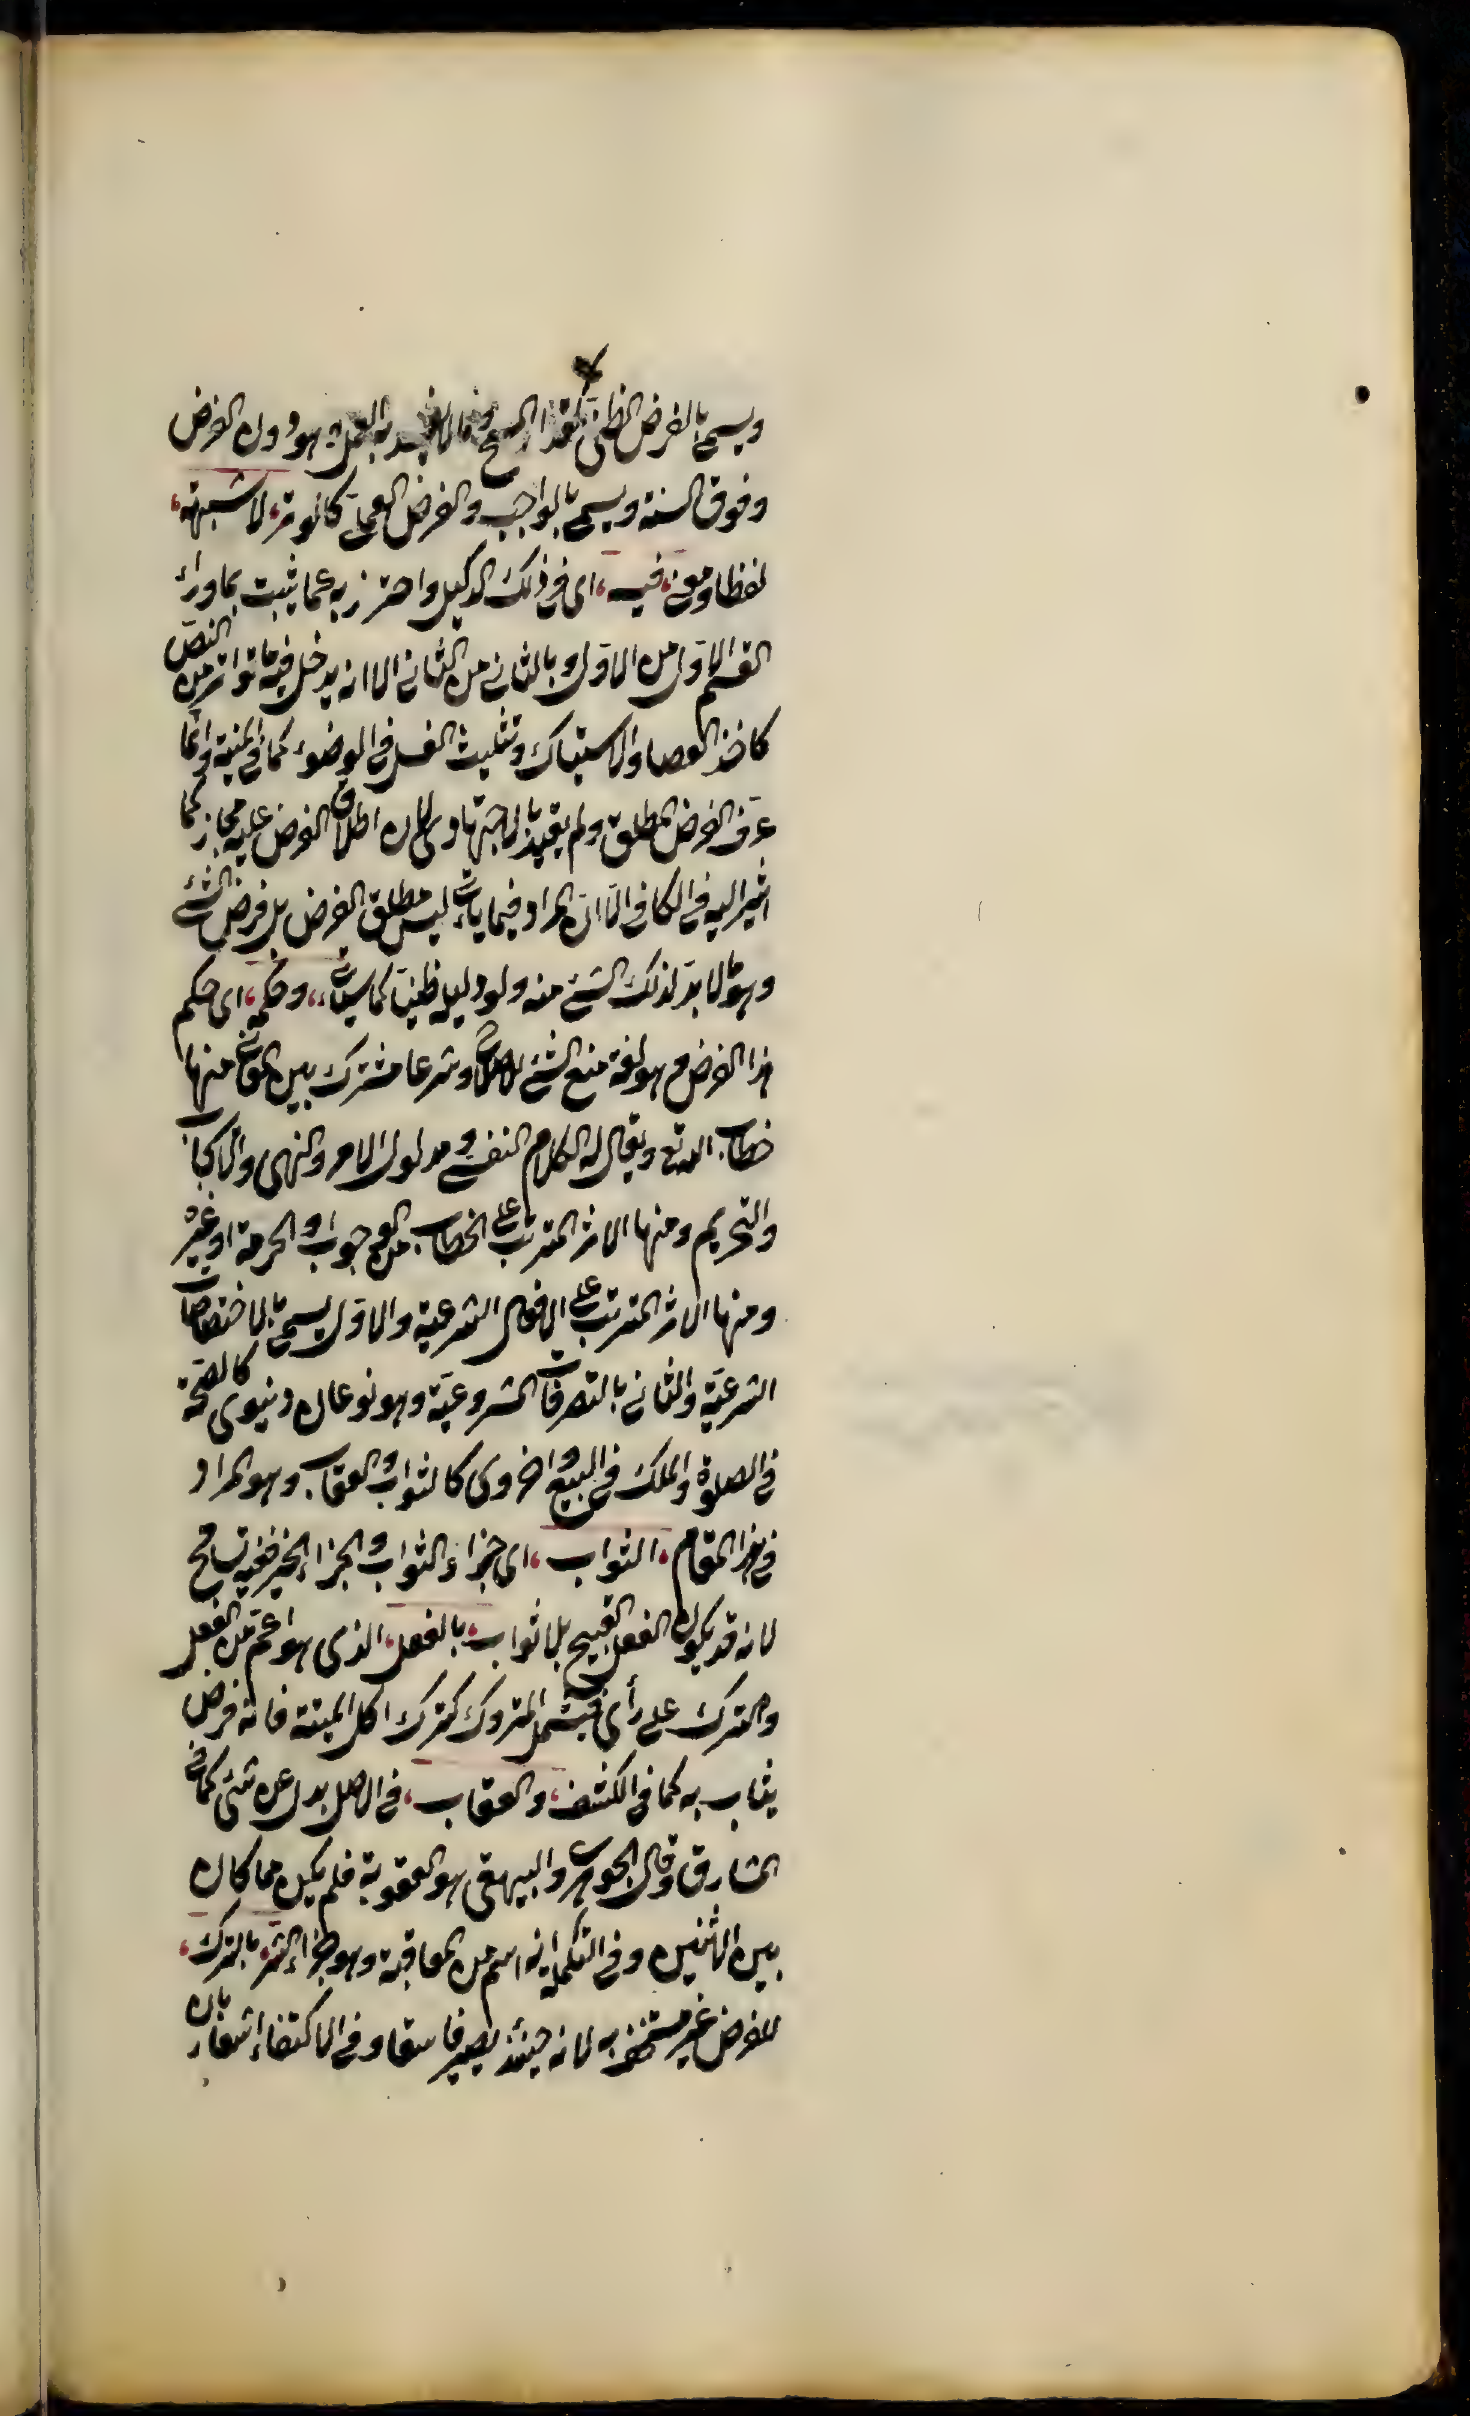 ويسمى بالفرض الظنى كمقدار المسح وما لا يفيد به العمل هو دون الفرض
وفوق السنة ويسمى بالواجب والفرض العملى كالوتر، لا شبهة،
لفظا ومعنى، فيه، اى فى ذلك الدليل واحترز به عما يثبت بما وراء
القسم الاول من الاول وبالثانى من الثانى الا انه يدخل فيه ما تواتر من النص
كاخذ العصا والاستياك وتثليث الغسل فى الوضوء كما فى المنية وانما
عرف الفرض المطلق ولم يقيد بالاجتهادى لان اطلاق الفرض عليه مجاز كما
اشير اليه فى الكافى الا ان المراد فيما يأتى ليس مطلق الفرض بل فرض الشئ
وهو ما لا بد لذلك الشئ منه ولو دليله ظنيا كما سيأتى، وحكمه، اى حكم
هذا الفرض وهو لغة منع الشئ للاصلاح وشرعا مشترك بين المعانى منها
خطاب الله تع ويقال له الكلام النفسى ومدلول الامر والنهى والايجاب
والتحريم ومنها الاثر المترتب على الخطاب من الوجوب والحرمة او غيره
ومنها الاثر المترتب على الافعال الشرعية والاول يسمى بالاختصاصات
الشرعية والثانى بالتصرفات المشروعية وهو نوعان دنيوى كالصحة
فى الصلوة والملك فى البيع واخروى كالثواب والعقاب وهو المراد
فى هذا المقام، الثواب، اى جزاء الثواب والجزاء الخير ففيه تسامح
لانه قد يكون الفعل القبيح بلا ثواب، بالفعل، الذى هو اعم من الفعل
والترك على رأى فيشمل المتروك كترك اكل الميتة فانه فرض
يثاب به كما فى الكشف، والعقاب، فى الاصل بدل عن شئ كما فى
المشارق وقال الجوهرى والبيهقى هو العقوبة فلم يكن مما كان
بين اثنين وفى التكملة انه اسم من المعاقبة وهو جزاء الشر، بالترك،
للفرض غير مستخف به لانه حينئذ يصير فاسقا وفى الاكتفاء اشعار بان